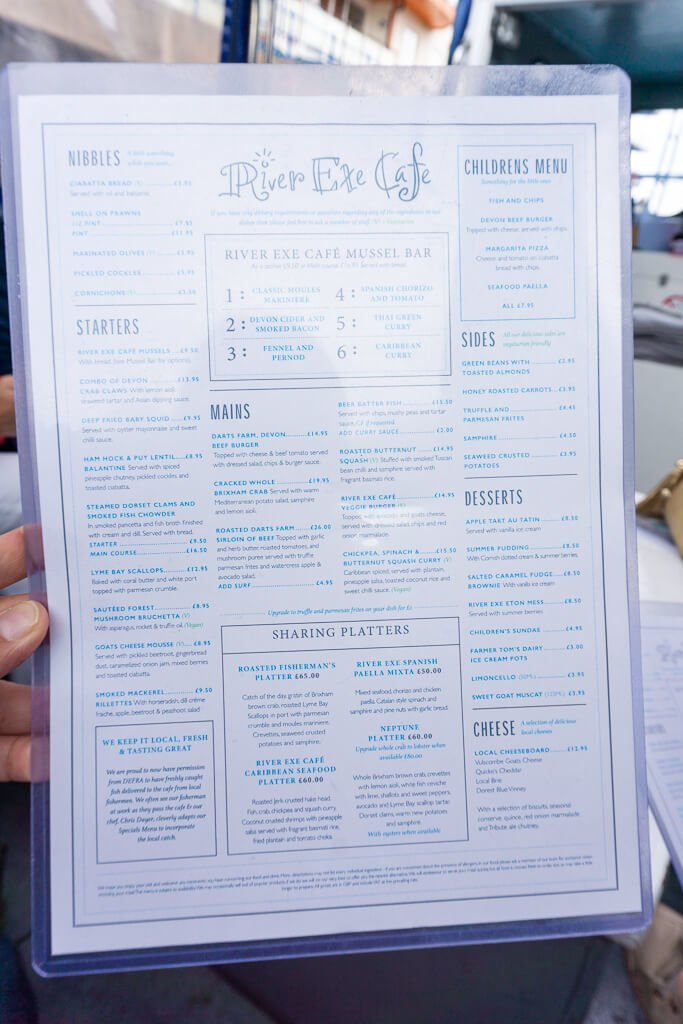 River Exe Cafe
NIBBLES
CIABATTA BREAD (V) £3.95
Served with oil and balsamic
SHELL ON PRAWNS
1/2 PINT £7.95
PINT
MARINATED OLIVES (V) £3.95
PICKLED COCKLES £3.95
CORNICHONS (V) £3.50
STARTERS
RIVER EXE CAFE MUSSELS £9.50
With bread (see Mussel Bar for options).
COMBO OF DEVON £13.95
CRAB CLAWS With lemon aioli,
seaweed tartar and Asian dipping sauce.
DEEP FRIED BABY SQUID £9.95
Served with oyster mayonnaise and sweet
chilli sauce.
HAM HOCK & PUY LENTIL £8.95
BALANTINE Served with spiced
pineapple chutney, pickled cockles and
toasted ciabatta.
STEAMED DORSET CLAMS AND
SMOKED FISH CHOWDER
In smoked pancetta and fish broth finished
with cream and dill. Served with bread.
STARTER £9.50
MAIN COURSE £16.50
LYME BAY SCALLOPS £12.95
Baked with coral butter and white port
topped with parmesan crumble.
SAUTÉED FOREST £8.95
MUSHROOM BRUCHETTA (V)
With asparagus, rocket & truffle oil (Vegan)
GOATS CHEESE MOUSSE (V) £8.95
Served with pickled beetroot, gingerbread
dust, caramelized onion jam, mixed berries
and toasted ciabatta.
SMOKED MACKEREL £9.50
RILLETTES With horseradish, dill crème
fraiche, apple, beetroot & peashoot salad
WE KEEP IT LOCAL, FRESH
& TASTING GREAT
We are proud to now have permission
from DEFRA to have freshly caught
fish delivered to the cafe from local
fishermen. We often see our fisherman
at work as they pass the cafe & our
chef, Chris Dayer, cleverly adapts our
Specials Menu to incorporate
the local catch.
RIVER EXE CAFÉ MUSSEL BAR
As a starter £9.50 or Main course £16.95 Served with bread.
1: CLASSIC MOULES
MARINIERE
2: DEVON CIDER AND
SMOKED BACON
3: FENNEL AND
PERNOD
4: SPANISH CHORIZO
AND TOMATO
5: THAI GREEN
CURRY
6: CARIBBEAN
CURRY
MAINS
DARTS FARM, DEVON £14.95
BEEF BURGER
Topped with cheese & beef tomato served
with dressed salad, chips & burger sauce.
CRACKED WHOLE £19.95
BRIXHAM CRAB Served with warm
Mediterranean potato salad, samphire
and lemon aioli.
ROASTED DARTS FARM £26.00
SIRLOIN OF BEEF Topped with garlic
and herb butter, roasted tomatoes, and
mushroom puree served with truffle
parmesan frites and watercress apple &
avocado salad.
ADD SURF £4.95
BEER BATTER FISH £15.50
Served with chips, mushy peas and tartar
sauce. GF if requested
ADD CURRY SAUCE £2.00
ROASTED BUTTERNUT £14.95
SQUASH (V) Stuffed with smoked Tuscan
bean chilli and samphire served with
fragrant basmati rice.
RIVER EXE CAFE £14.95
VEGGIE BURGER (V)
Topped with avocado and goats cheese,
served with dressed salad, chips and red
onion marmalade.
CHICKPEA, SPINACH & £15.50
BUTTERNUT SQUASH CURRY (V)
Caribbean spiced, served with plantain,
pineapple salsa, toasted coconut rice and
sweet chilli sauce. (Vegan)
Upgrade to truffle and parmesan frites on your dish for £2
SHARING PLATTERS
ROASTED FISHERMAN'S
PLATTER £65.00
Catch of the day, gratin of Brixham
brown crab, roasted Lyme Bay
Scallops in port with parmesan
crumble and moules mariniere.
Crevettes, seaweed crusted
potatoes and samphire.
RIVER EXE CAFÉ
CARIBBEAN SEAFOOD
PLATTER £60.00
Roasted Jerk crusted hake head.
Fish, crab, chickpea and squash curry.
Coconut crusted shrimps with pineapple
salsa served with fragrant basmati rice,
fried plantain and tomato choka.
RIVER EXE SPANISH
PAELLA MIXTA £50.00
Mixed seafood, chorizo and chicken
paella. Catalan style spinach and
samphire and pine nuts with garlic bread.
NEPTUNE
PLATTER £60.00
Upgrade whole crab to lobster when
available £80.00
Whole Brixham brown crab, crevettes
with lemon aioli, white fish ceviche
with lime, shallots and sweet peppers,
avocado and Lyme Bay scallop tartar.
Dorset clams, warm new potatoes
and samphire.
With oysters when available
CHILDRENS MENU
Something for the little ones
FISH AND CHIPS
DEVON BEEF BURGER
Topped with cheese, served with chips.
MARGARITA PIZZA
Cheese and tomato on ciabatta
bread with chips.
SEAFOOD PAELLA
ALL £7.95
SIDES All our delicious sides are
vegetarian friendly
GREEN BEANS WITH £3.95
TOASTED ALMONDS
HONEY ROASTED CARROTS £3.95
TRUFFLE AND £4.45
PARMESAN FRITES
SAMPHIRE £4.50
SEAWEED CRUSTED £3.95
POTATOES
DESSERTS
APPLE TART AU TATIN £8.50
Served with vanilla ice cream
SUMMER PUDDING £8.50
With Cornish clotted cream & summer berries.
SALTED CARAMEL FUDGE £8.50
BROWNIE With vanilla ice cream
RIVER EXE ETON MESS £8.50
Served with summer berries
CHILDREN'S SUNDAE £4.95
FARMER TOM'S DAIRY £3.00
ICE CREAM POTS
LIMONCELLO (50ML) £3.95
SWEET GOAT MUSCAT (125ML) £3.95
CHEESE A selection of delicious
local cheeses
LOCAL CHEESEBOARD £12.95
Vulscombe Goats Cheese
Quickes Cheddar
Local Brie
Dorset Blue Vinney
With a selection of biscuits, seasonal
conserve, quince, red onion marmalade
and Tribute ale chutney.